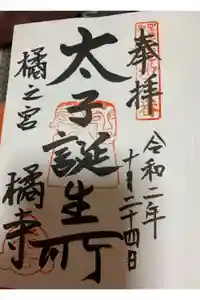 奉拝
令和二年
十月二十四日
太子誕生所
橘之宮
橘寺